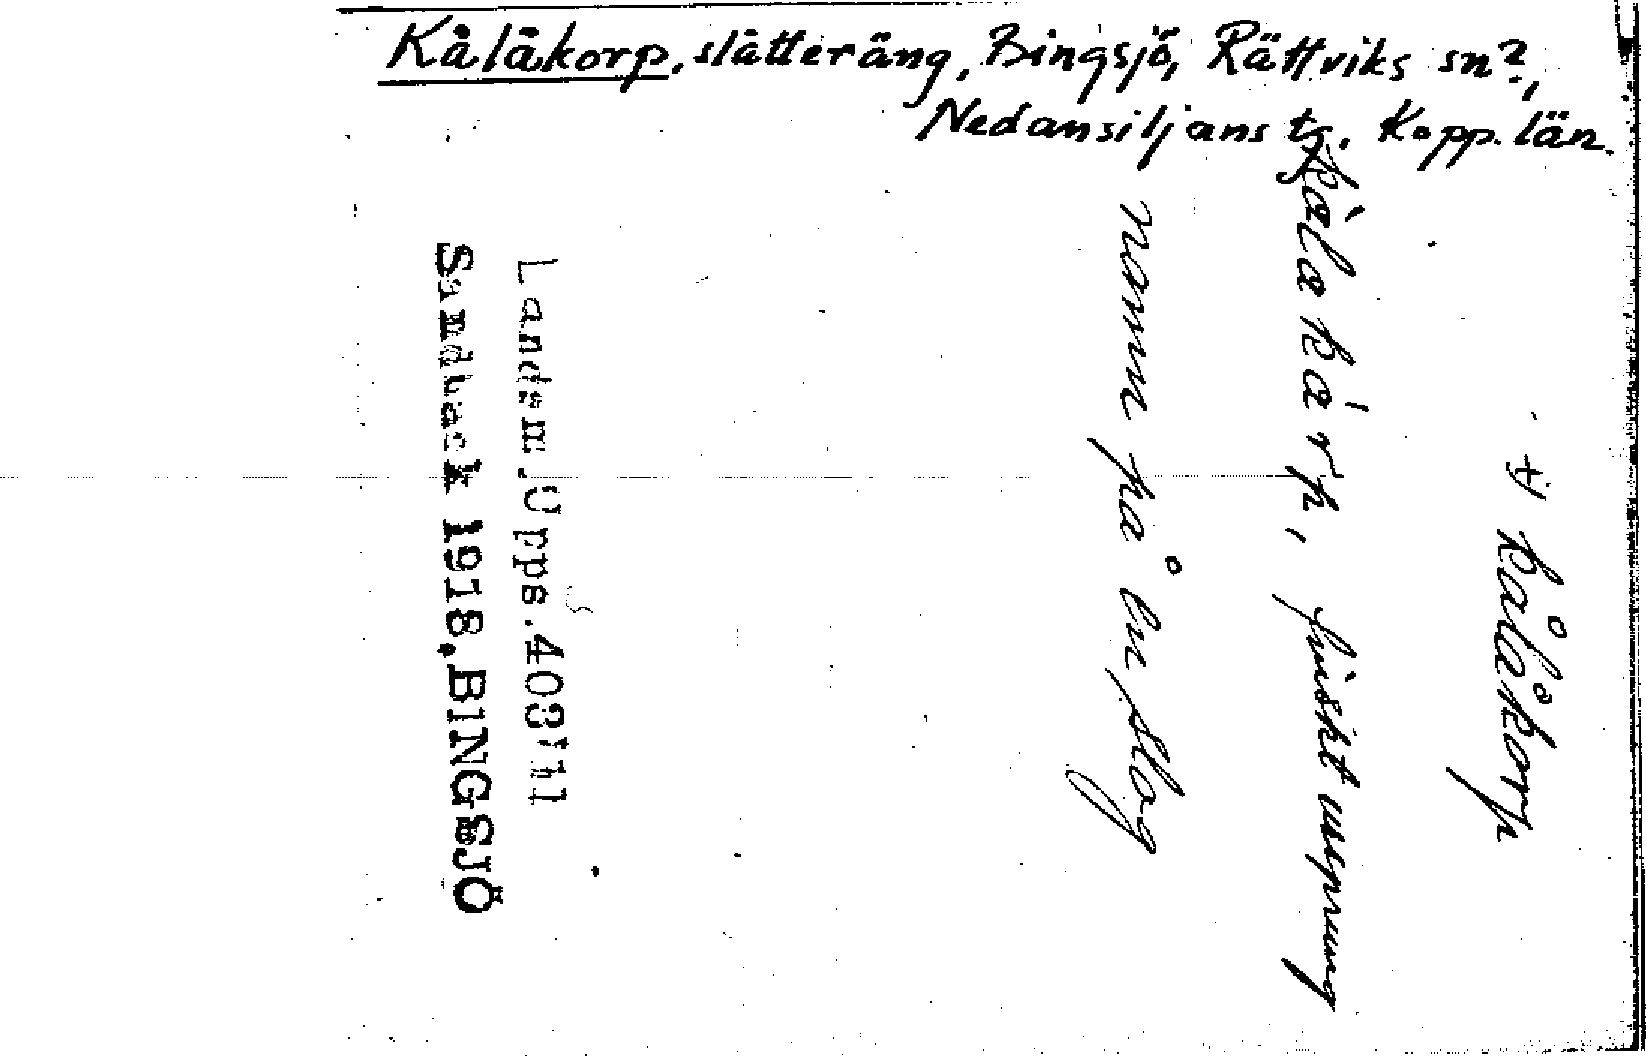 Kålåkorp, slätteräng, Bingsjö, Rättviks sn?,
Nedansiljans tg. Kopp. län.
kålåkorp
finskt ursprung
namn på en slog
Landsm. Upps. 403:
Sandback 1918. BINGSJÖ